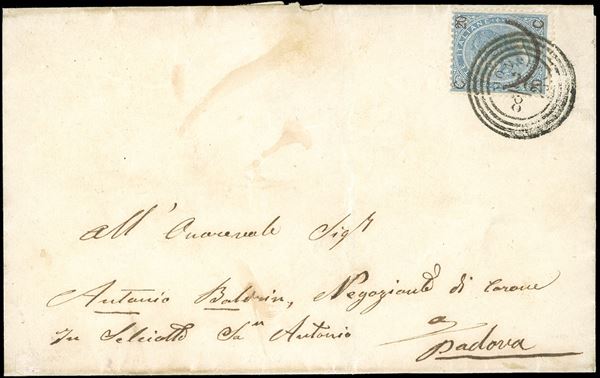 C 20 C
ITALIANE
All' Onorevole Sigr
Antonio Baldrin, Negoziante di Corone
In Selciato San Antonio
a
Padova